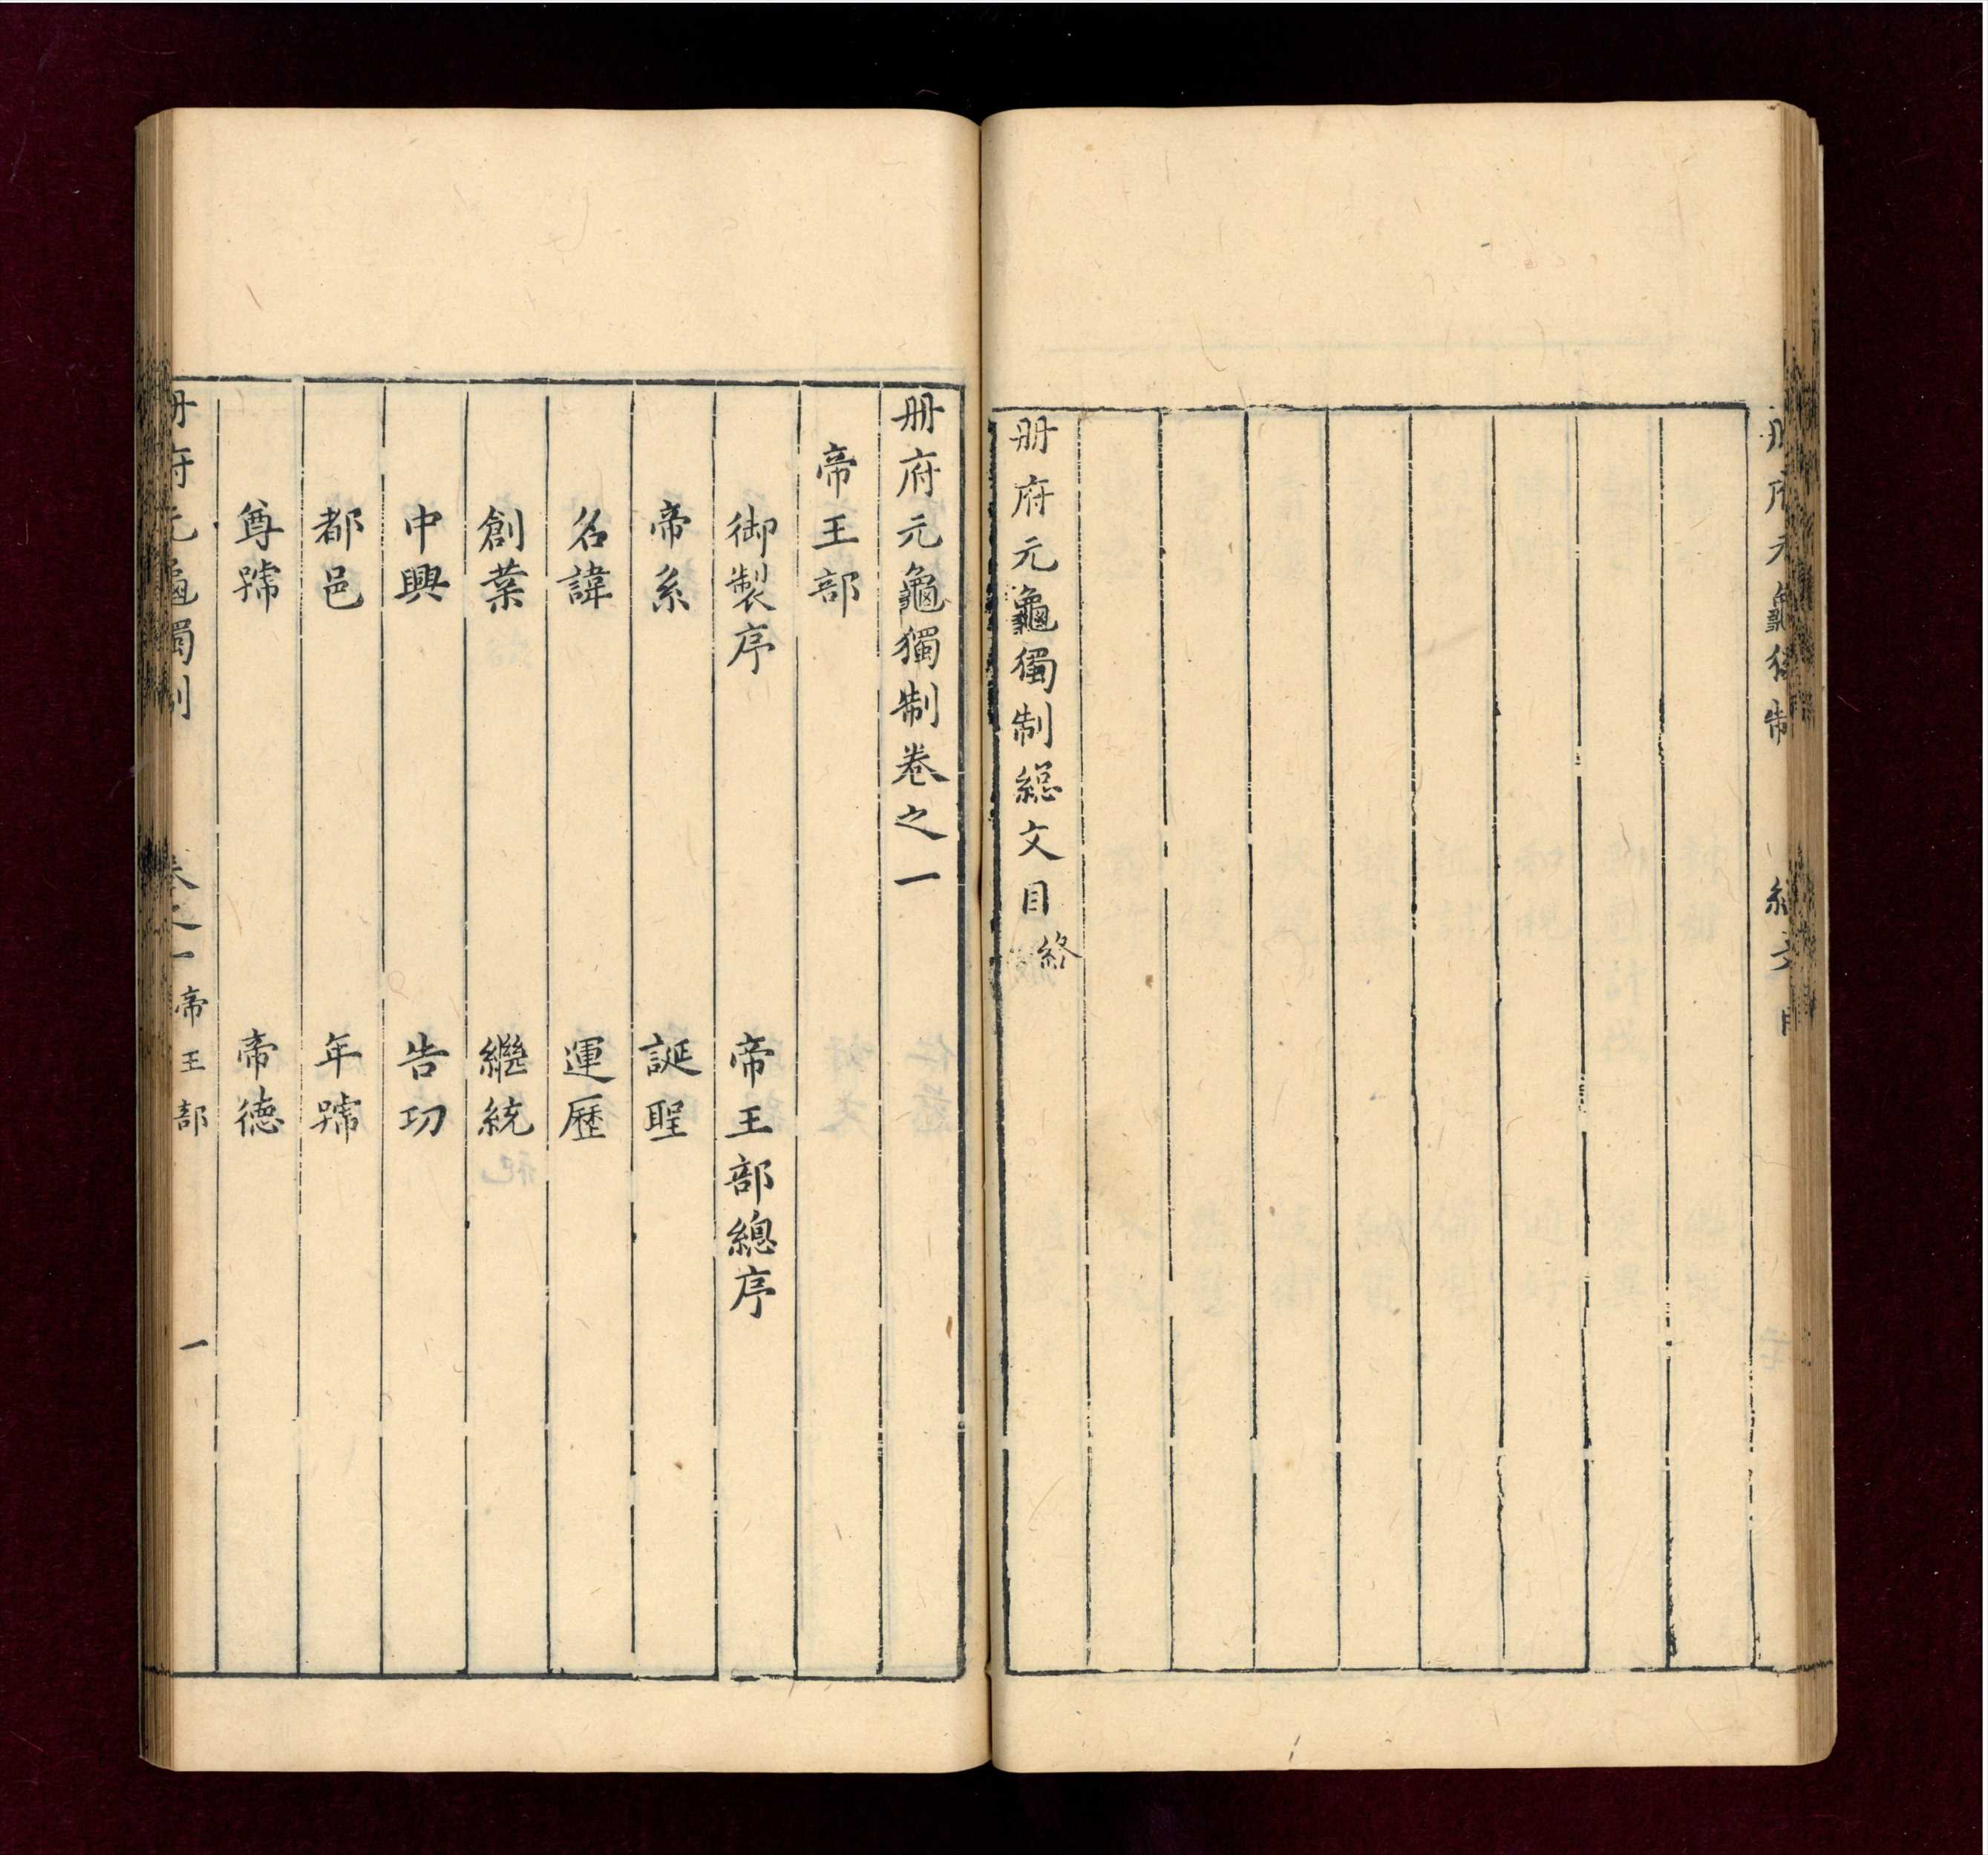 册府元龜獨制 總文目
册府元龜獨制総文目終
册府元龜獨制卷之一
帝王部
御製序 帝王部總序
帝系 誕聖
名諱 運歷
創業 繼統
中興 告功
都邑 年號
尊號 帝德
册府元龜獨制 卷之一 帝王部 一